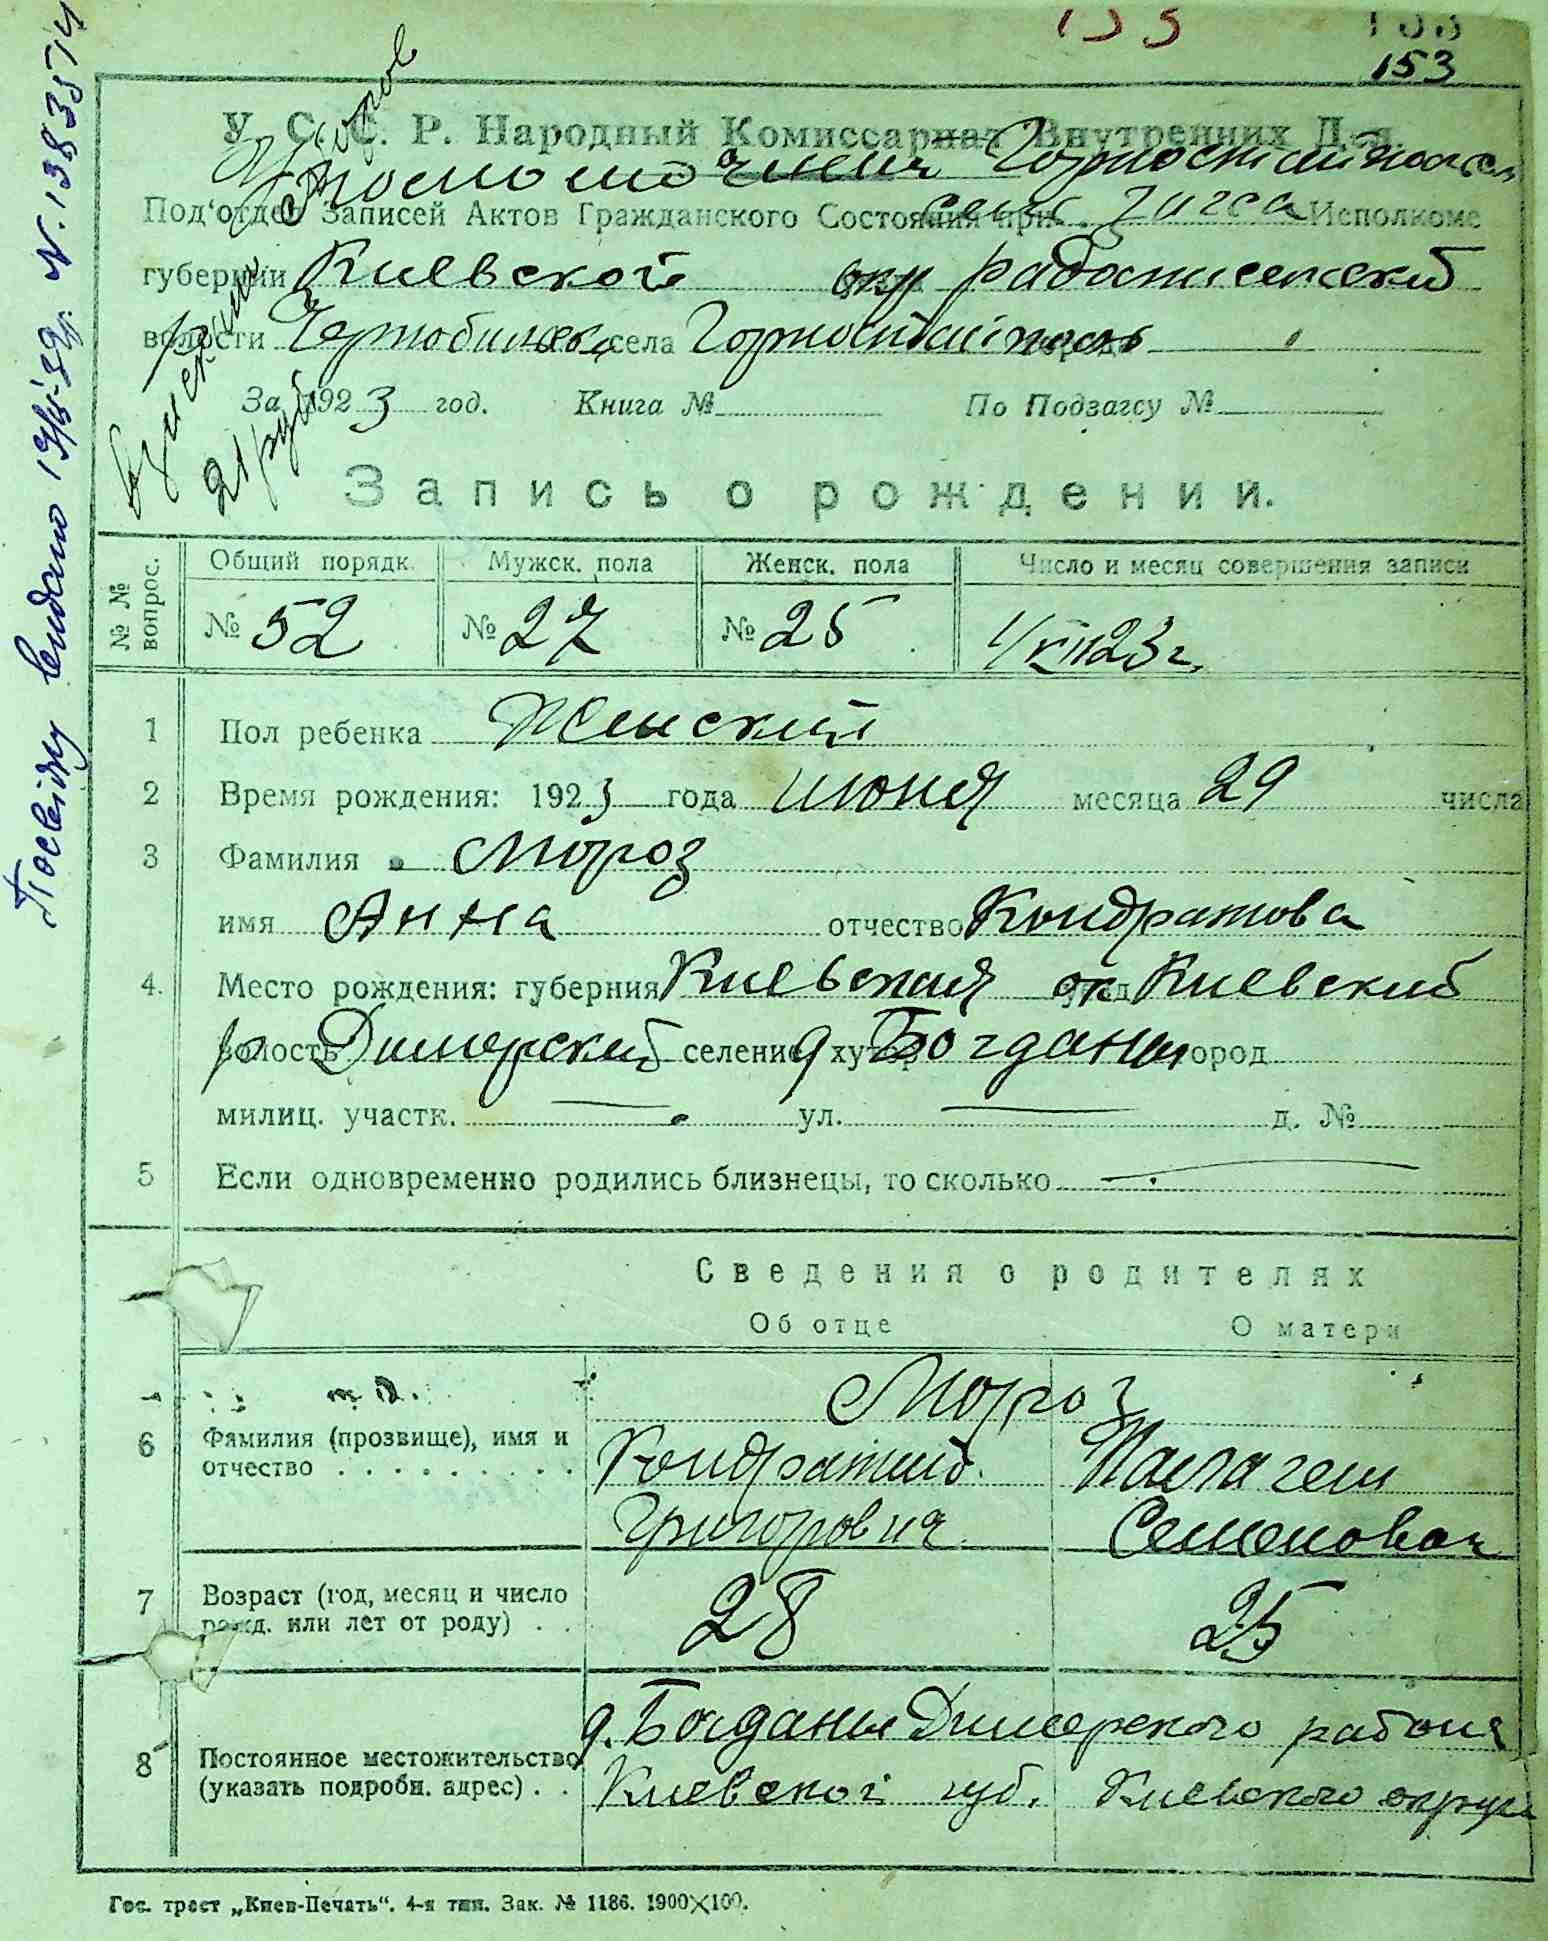 153
153
У. С. С. Р. Народный Комиссариат Внутренних Дел.
Под'отдел Записей Актов Гражданского Состояния при Загса Исполкоме
губернии Киевской окр Радомисельский
волости села Горностайполь
За 1923 год. Книга № По Подзагсу №
21 руб
Запись о рождении.
№ № вопрос.
Общий порядк. Мужск. пола Женск. пола Число и месяц совершения записи
№ 52 № 27 № 25 1/VIII 23 г.
1 Пол ребенка Женский
2 Время рождения: 1923 года июня месяца 29 числа
3 Фамилия Мороз
имя Анна отчество Кондратова
4. Место рождения: губерния Киевская ок Киевский
р Димерский селение д Богданы город
милиц. участк. ул. д. №
5 Если одновременно родились близнецы, то сколько
Сведения о родителях
Об отце О матери
Мороз
6 Фамилия (прозвище), имя и Кондратий
отчество Григорович Семеновна
7 Возраст (год, месяц и число 28 25
рожд. или лет от роду)
д. Богданы Димерского района
8 Постоянное местожительство
(указать подробн. адрес) Киевской губ. Киевского округа
Гос. трест „Киев-Печать“. 4-я тип. Зак. № 1186. 1900×100.